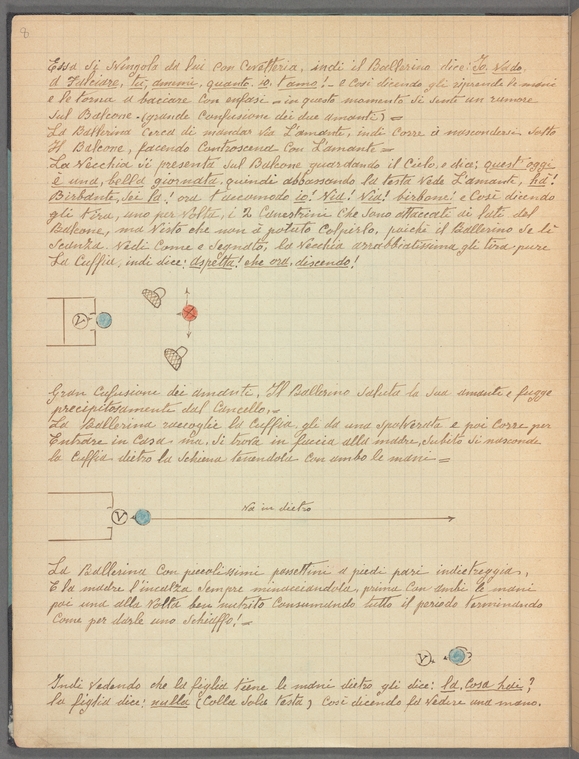 8
Essa si svingola da lui con Covetteria, indi il Ballerino dice: Io. vado.
a falciare, tu, ammi, quanto. io. t'amo! - e Cosi dicendo gli riprende le mani
e le torna a baciare Con enfasi - in questo momento si sente un rumore
sul Balcone - (grande Confusione dei due amanti) =
La Ballerina Cerca di mandar via L'amante, indi Corre à nascondersi sotto
Il Balcone, facendo Controscena Con L'amante =
La Vecchia si presenta sul Balcone guardando il Cielo, e dice; quest'oggi
è una, bella giornata, quindi abbassando la testa vede L'amante, ha!
Birbante, sei la! ora t'accomodo io! Via! Via! birbone e Cosi dicendo
gli tira, uno per volta, i 2 Canestrini che sono attaccati ai lati del
Balcone, ma visto che non à potuto Colpirlo, poichè il Ballerino se li
scanza. Vedi Come e segnato, la Vecchia arrabbiatissima gli tira pure
La Cuffia, indi dice: aspetta! che ora, discendo!
V
Gran Cufusione dei amanti, Il Ballerino saluta la sua amante e fugge
precipitosamente dal Cancello. -
La Ballerina raccoglie la Cuffia gli da una spolverata e poi Corre per
Entrare in Casa ma, si trova in faccia alla madre, subito si nasconde
la Cuffia dietro la schiena tenendola Con ambo le mani =
V
Va in dietro
La Ballerina Con piccolissimi passettini a piedi pari indietreggia,
E la madre l'incalza sempre minacciandola, prima Con ambi le mani
poi una alla volta ben nutrito Consumando tutto il periodo terminando
Come per darle uno schiaffo! -
V
Indi vedendo che la figlia tiene le mani dietro gli dice: la, Cosa hai?
la figlia dice; nulla (Colla sola testa) Cosi dicendo fa vedere una mano.